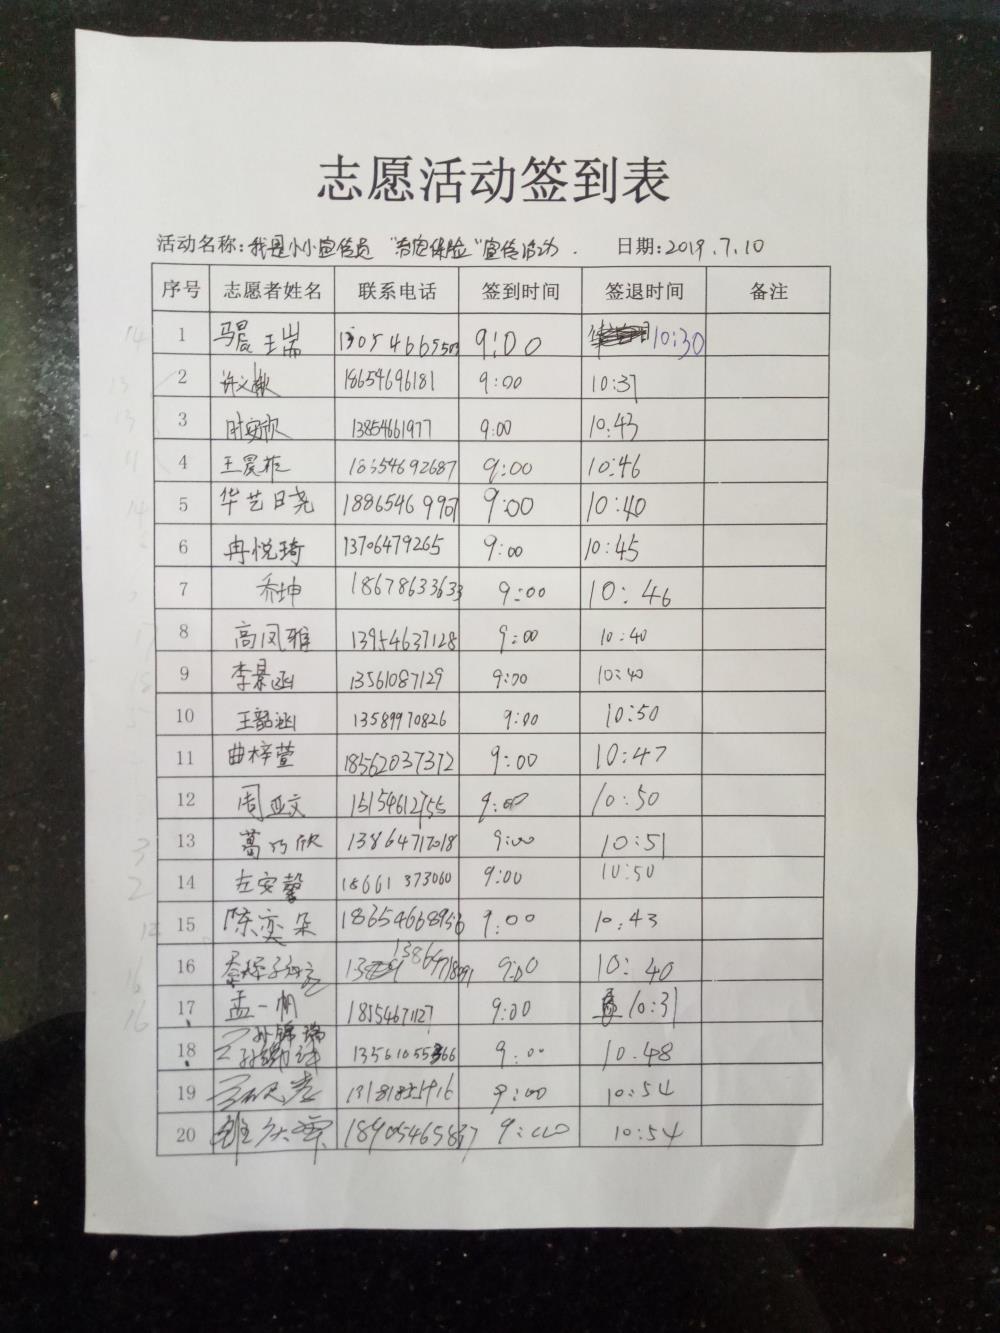 志愿活动签到表
活动名称:我是小小宣传员 "治安保险"宣传活动. 日期:2019.7.10
序号 志愿者姓名 联系电话 签到时间 签退时间 备注
1 9:00 10:30
2 18654696181 9:00 10:37
3 时安欣 13854661977 9:00 10:43
4 王晨 18654692687 9:00 10:46
5 华艺日尧 1886546 9:00 10:40
6 冉悦琦 13706479265 9:00 10:45
7 乔坤 18678633633 9:00 10:46
8 高凤雅 13954637128 9:00 10:40
9 李景函 13561087129 9:00 10:40
10 王韶涵 13589970826 9:00 10:50
11 曲梓萱 18562037372 9:00 10:47
12 周亚文 15154612755 9:00 10:50
13 葛巧欣 13864717018 9:00 10:51
14 左安馨 18661373060 9:00 10:50
15 陈奕朵 18654668956 9:00 10:43
16 9:00 10:40
17 孟一帆 18554671127 9:00 10:31
18 孙锦瑞 9:00 10.48
19 9:00 10:54
20 9:00 10:54